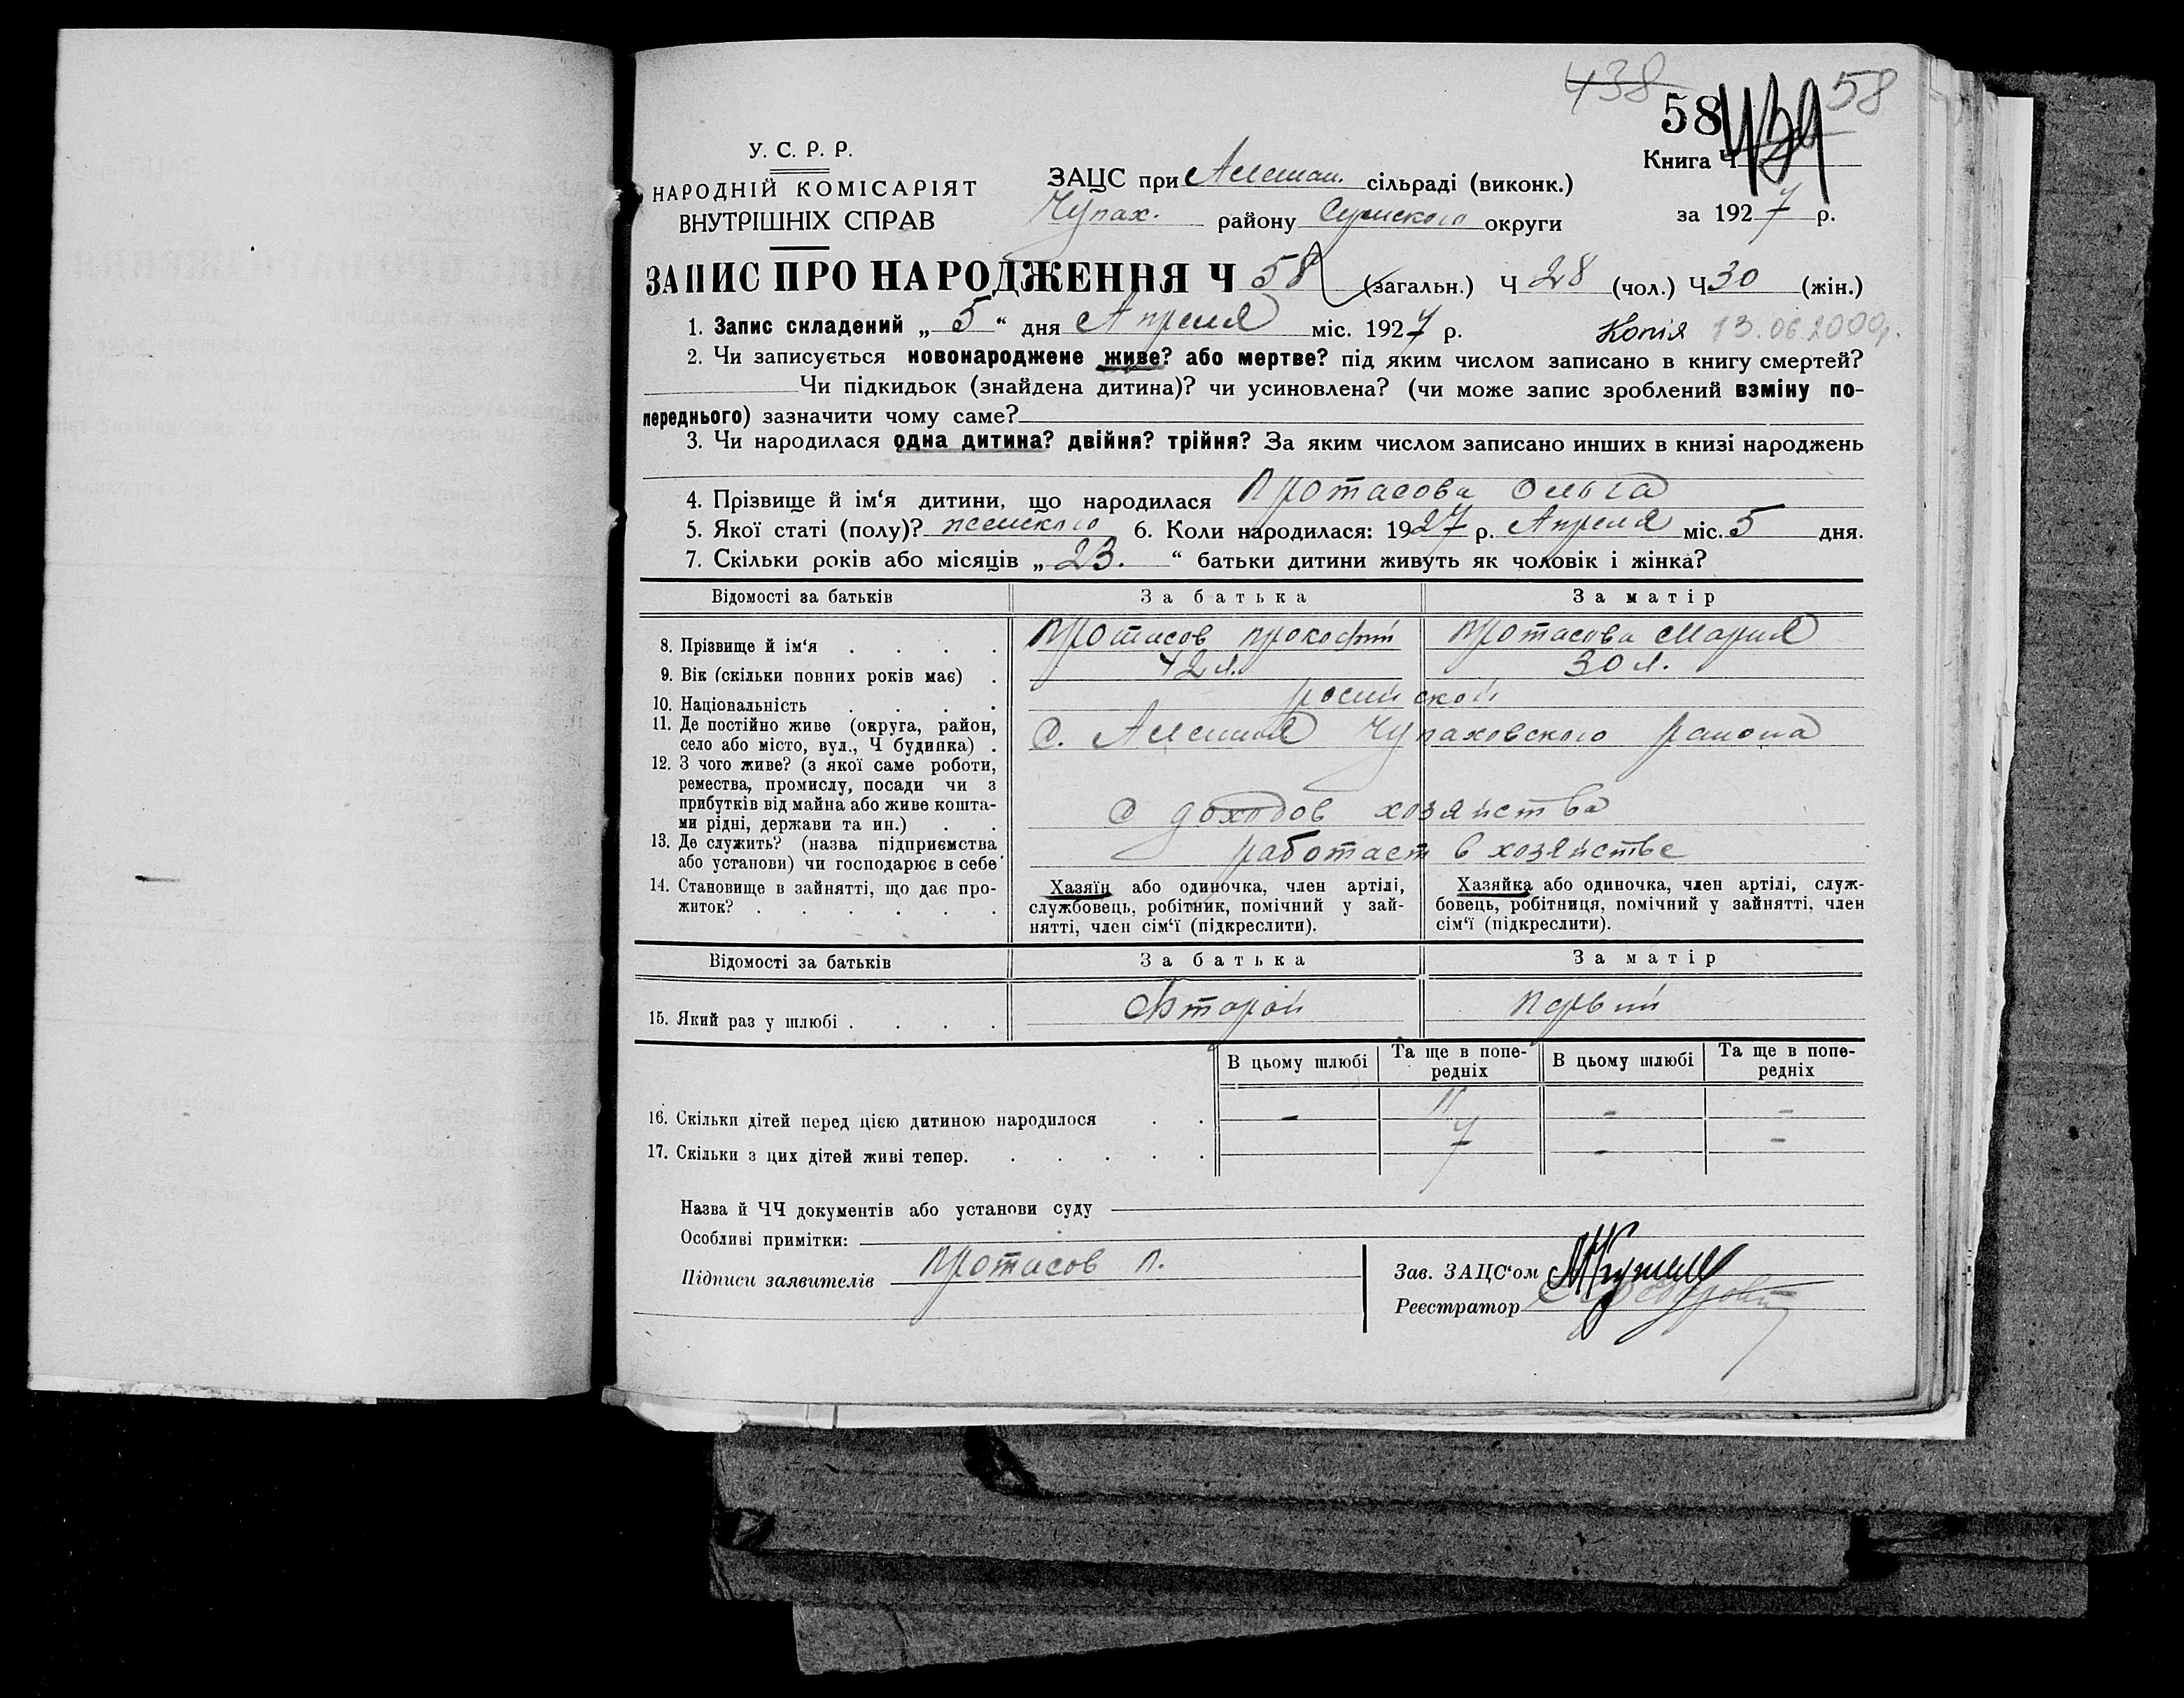 438
58 439 58
У. С. Р. Р.
НАРОДНІЙ КОМІСАРІЯТ
ВНУТРІШНІХ СПРАВ
Книга Ч
ЗАЦС при Алешан. сільраді (виконк.)
Чупах. району Сумского округи
за 1927 р.
ЗАПИС ПРО НАРОДЖЕННЯ Ч 58 (загальн.) Ч 28 (чол.) Ч 30 (жін.)
1. Запис складений „ 5 “ дня Апреля міс. 1927 р. Копія 13.06.2000р.
2. Чи записується новонароджене живе? або мертве? під яким числом записано в книгу смертей?
Чи підкидьок (знайдена дитина)? чи усиновлена? (чи може запис зроблений взміну по-
переднього) зазначити чому саме?
3. Чи народилася одна дитина? двійня? трійня? За яким числом записано инших в книзі народжень
4. Прізвище й ім‘я дитини, що народилася Протасова Ольга
5. Якої статі (полу)? женского 6. Коли народилася: 1927 р. Апреля міс. 5 дня.
7. Скільки років або місяців „ 23. “ батьки дитини живуть як чоловік і жінка?
Відомості за батьків За батька За матір
8. Прізвище й ім‘я . . . . Протасов Прокофий Протасова Мария
9. Вік (скільки повних років має) . 42 л. 30 л.
10. Національність . . . . росийской
11. Де постійно живе (округа, район,
село або місто, вул., Ч будинка) . С. Алешня Чупаховского района
12. З чого живе? (з якої саме роботи,
ремества, промислу, посади чи з
прибутків від майна або живе кошта-
ми рідні, держави та ин.) . . С доходов хозяйства
13. Де служить? (назва підприємства
або установи) чи господарює в себе работает в хозяйстве
14. Становище в зайнятті, що дає про-
житок? . . . . . .
Хазяїн або одиночка, член артілі,
службовець, робітник, помічний у зай-
нятті, член сім‘ї (підкреслити).
Хазяйка або одиночка, член артілі, служ-
бовець, робітниця, помічний у зайнятті, член
сім‘ї (підкреслити).
Відомості за батьків За батька За матір
15. Який раз у шлюбі . . . . Второй Первий
В цьому шлюбі Та ще в попе-
редніх В цьому шлюбі Та ще в попе-
редніх
16. Скільки дітей перед цією дитиною народилося . . - 11 - -
17. Скільки з цих дітей живі тепер. . . . . . 7 - -
Назва й ЧЧ документів або установи суду
Особливі примітки:
Підписи заявителів Протасов П.
Зав. ЗАЦС‘ом
Реєстратор